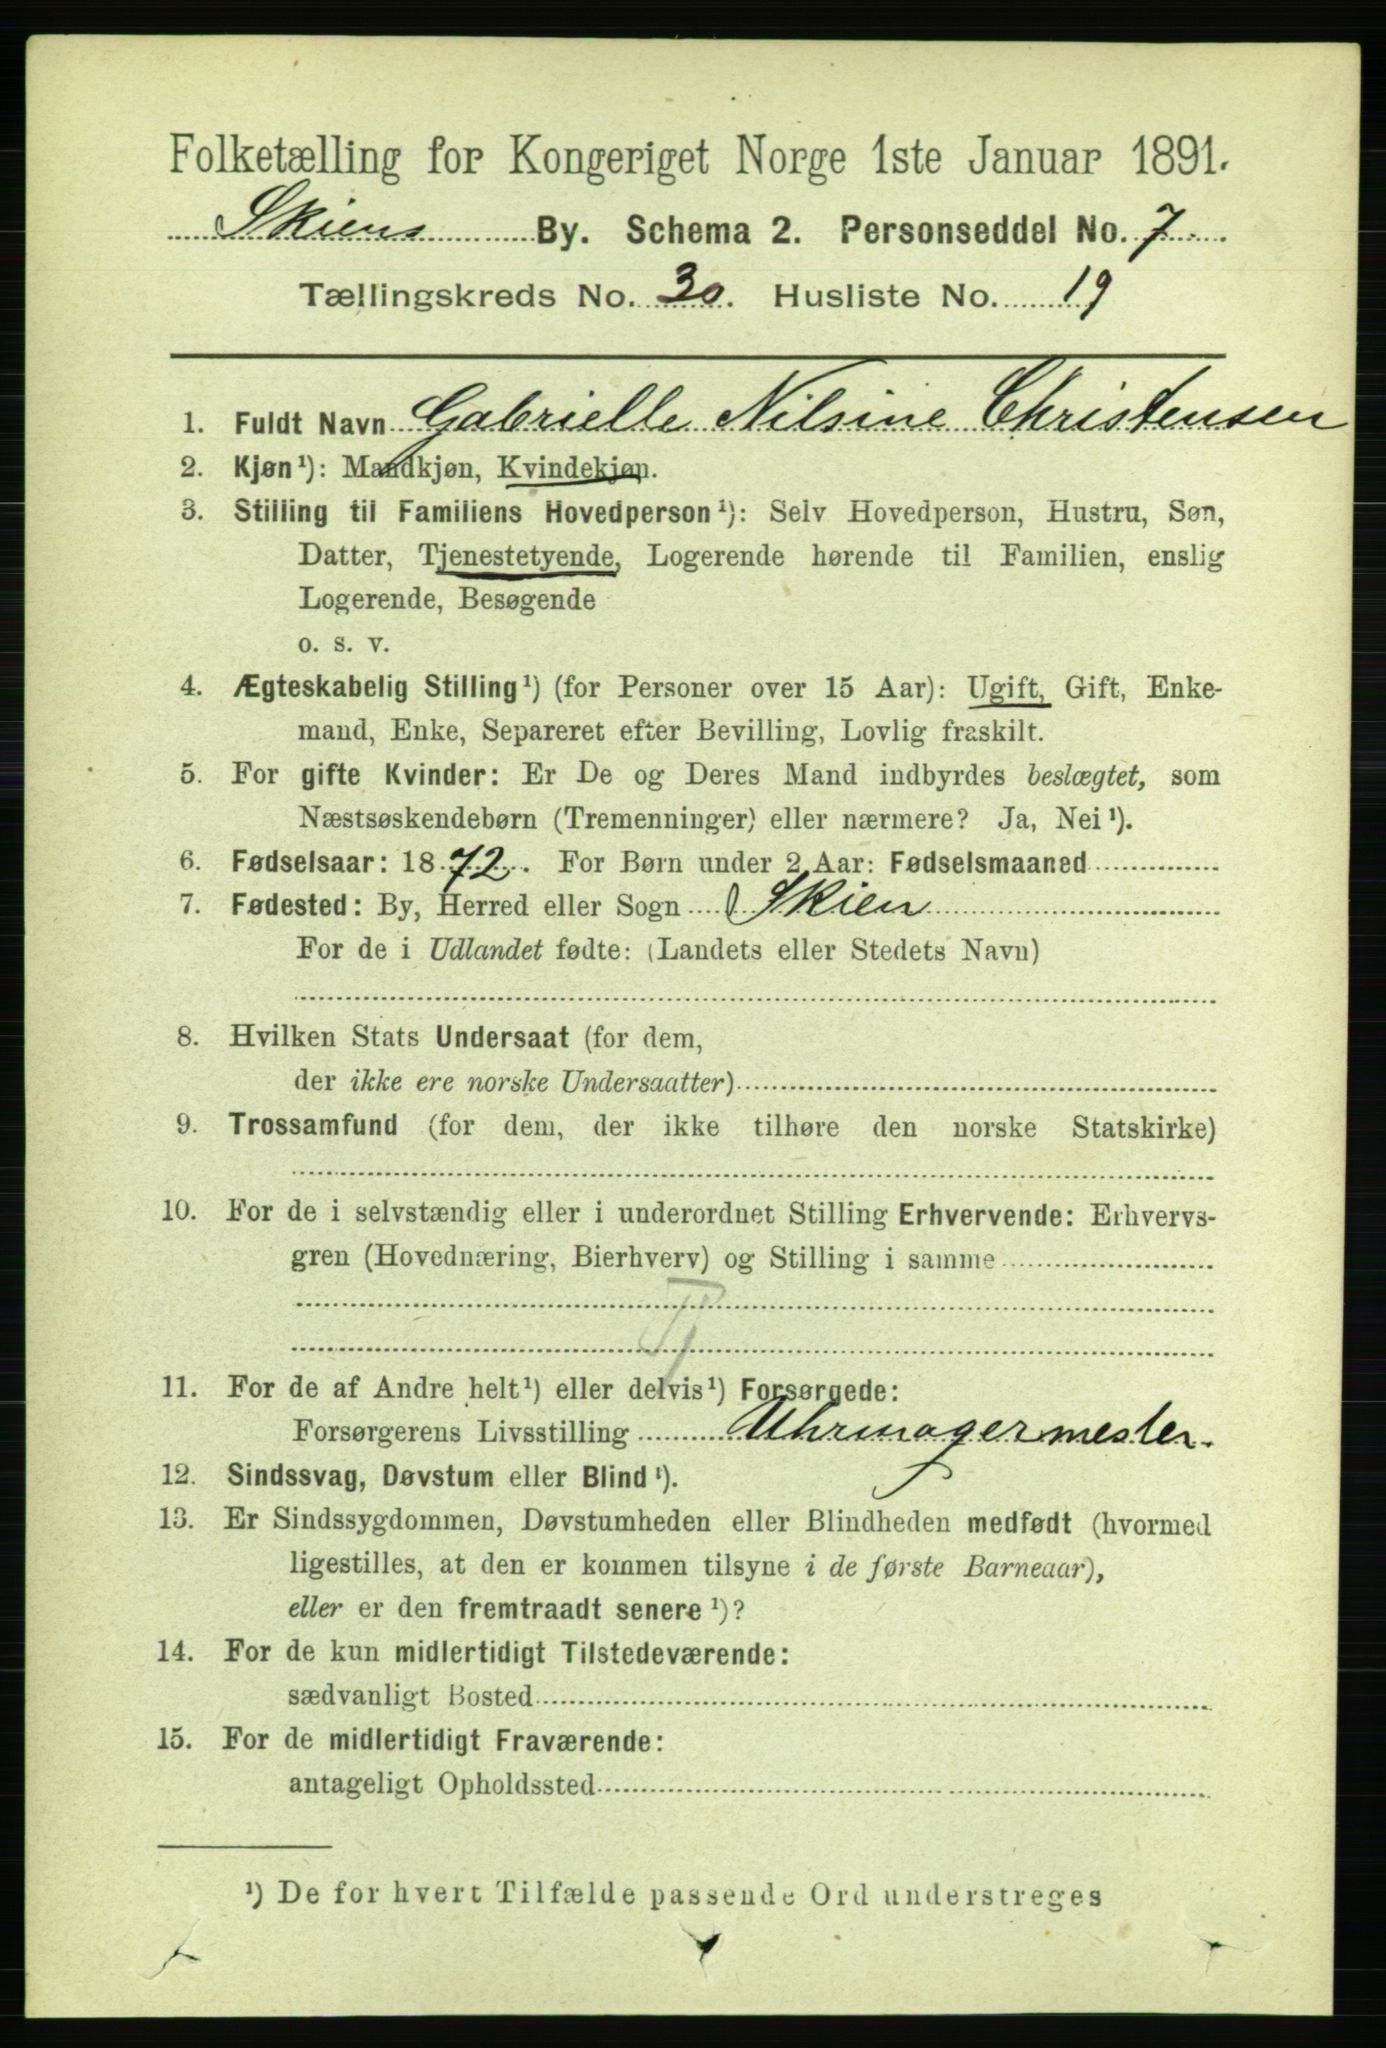 Folketælling for Kongeriget Norge 1ste Januar 1891.
Skiens By. Schema 2. Personseddel No. 7
Tællingskreds No. 30. Husliste No. 19
1. Fuldt Navn Gabrielle Nilsine Christensen
2. Kjøn¹): Mandkjøn, Kvindekjøn.
3. Stilling til Familiens Hovedperson¹): Selv Hovedperson, Hustru, Søn,
Datter, Tjenestetyende, Logerende hørende til Familien, enslig
Logerende, Besøgende
o. s. v.
4. Ægteskabelig Stilling¹) (for Personer over 15 Aar): Ugift, Gift, Enke-
mand, Enke, Separeret efter Bevilling, Lovlig fraskilt.
5. For gifte Kvinder: Er De og Deres Mand indbyrdes beslægtet, som
Næstsøskendebørn (Tremenninger) eller nærmere? Ja, Nei¹).
6. Fødselsaar: 1872. For Børn under 2 Aar: Fødselsmaaned
7. Fødested: By, Herred eller Sogn Skien
For de i Udlandet fødte: (Landets eller Stedets Navn)
8. Hvilken Stats Undersaat (for dem,
der ikke ere norske Undersaatter)
9. Trossamfund (for dem, der ikke tilhøre den norske Statskirke)
10. For de i selvstændig eller i underordnet Stilling Erhvervende: Erhvervs-
gren (Hovednæring, Bierhverv) og Stilling i samme
11. For de af Andre helt¹) eller delvis¹) Forsørgede:
Forsørgerens Livsstilling Uhrmagermester.
12. Sindssvag, Døvstum eller Blind¹).
13. Er Sindssygdommen, Døvstumheden eller Blindheden medfødt (hvormed
ligestilles, at den er kommen tilsyne i de første Barneaar),
eller er den fremtraadt senere¹)?
14. For de kun midlertidigt Tilstedeværende:
sædvanligt Bosted
15. For de midlertidigt Fraværende:
antageligt Opholdssted
¹) De for hvert Tilfælde passende Ord understreges